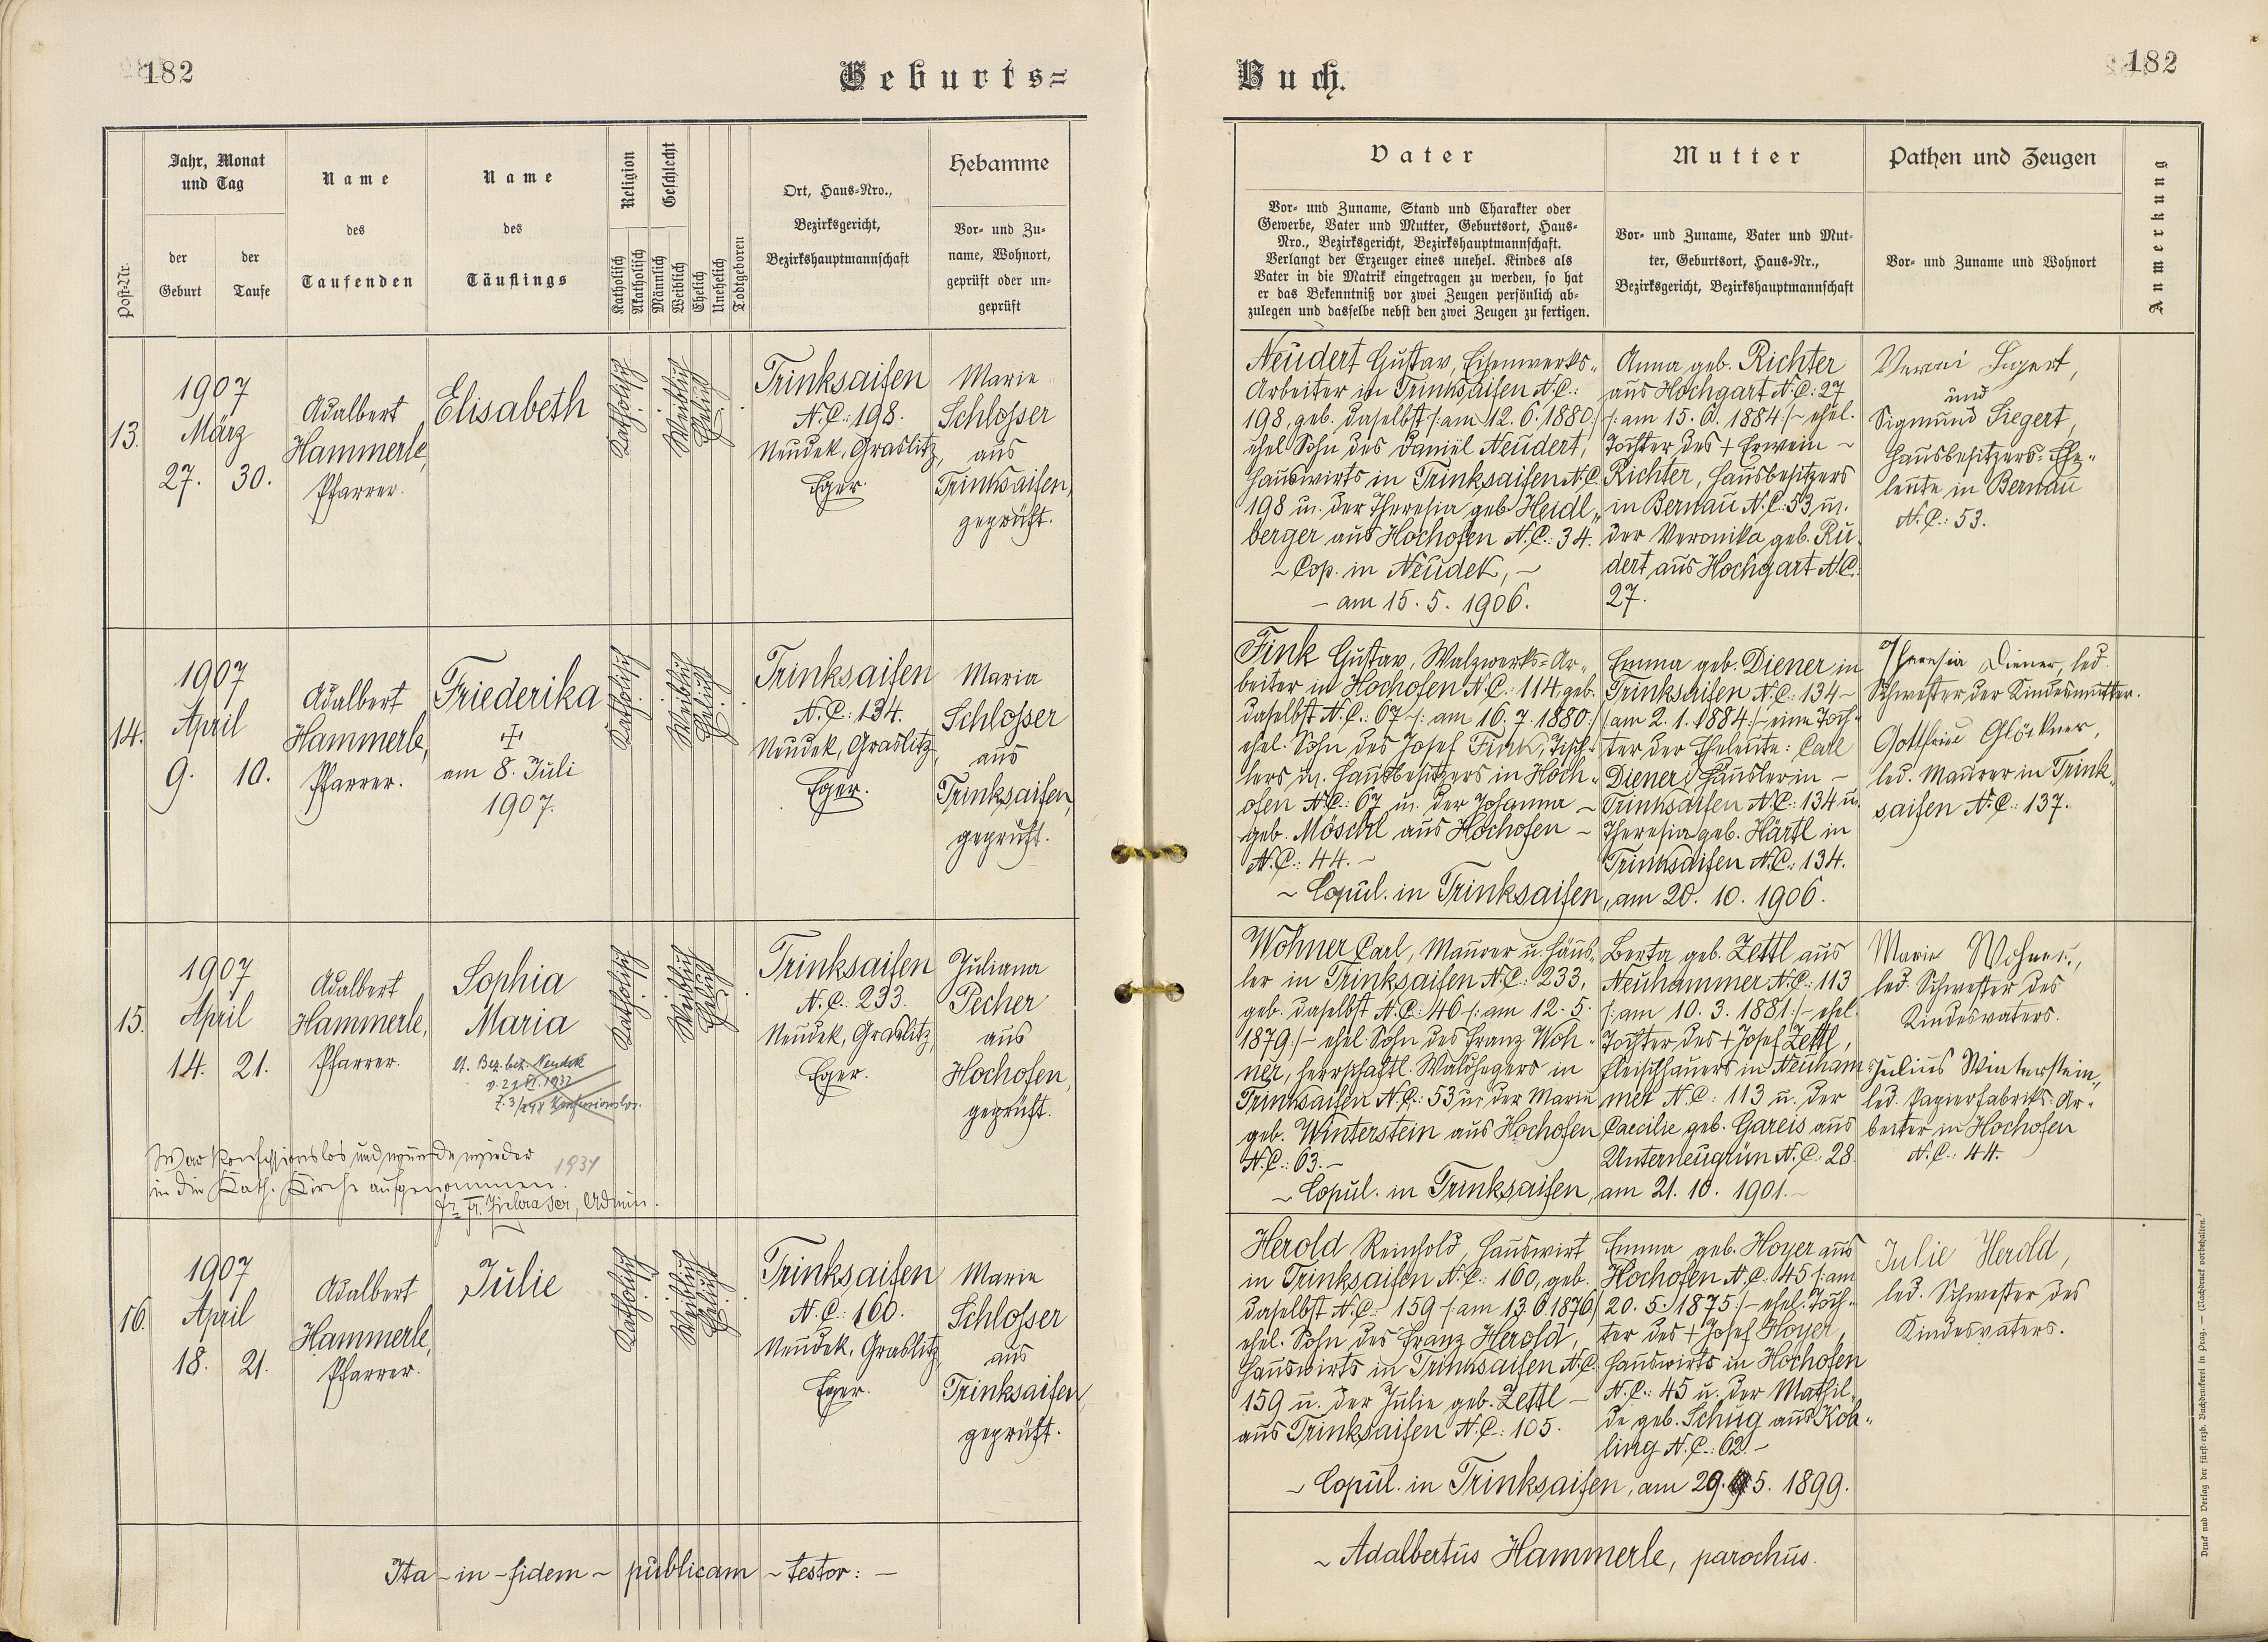 182
Geburts=
Jahr, Monat
und Tag
der
Geburt
der
Taufe
Post-Nr.
Name
des
Taufenden
Name
des
Täuflings
Religion
Katholisch
Akatholisch
Geschlecht
Männlich
Weiblich
Ehelich
Unehelich
Todtgeboren
Ort, Haus=Nro.,
Bezirksgericht,
Bezirkshauptmannschaft
Hebamme
Vor= und Zu=
name, Wohnort,
geprüft oder un=
geprüft
13.
1907
März
27. 30.
Adalbert
Hammerle,
Pfarrer.
Elisabeth
Katholisch
Weiblich
Ehelich
Trinksaifen
N.C.: 198.
Neudek, Graslitz,
Eger.
Marie
Schlosser
aus
Trinksaifen,
geprüft.
14.
1907
April
9. 10.
Adalbert
Hammerle,
Pfarrer.
Friederika
am 8. Juli
1907.
Katholisch
Weiblich
Ehelich
Trinksaifen
N.C.: 134.
Neudek, Graslitz,
Eger.
Maria
Schlosser
aus
Trinksaifen,
geprüft.
15.
1907
April
14. 21.
Adalbert
Hammerle,
Pfarrer.
Sophia
Maria
Bez. beh. Neudek
Konfessionslos.
War konfessionslos und wurde wieder 1934
in die Kath. Kirche aufgenommen.
Admin.
Katholisch
Weiblich
Ehelich
Trinksaifen
N.C.: 233.
Neudek, Graslitz,
Eger.
Juliana
Pecher
aus
Hochofen,
geprüft.
16.
1907
April
18. 21.
Adalbert
Hammerle,
Pfarrer.
Julie
Katholisch
Weiblich
Ehelich
Trinksaifen
N.C.: 160.
Neudek, Graslitz,
Eger.
Marie
Schlosser
aus
Trinksaifen,
geprüft.
Ita - in - fidem - publicam - testor: -
Buch.
182
Vater
Vor= und Zuname, Stand und Charakter oder
Gewerbe, Vater und Mutter, Geburtsort, Haus=
Nro., Bezirksgericht, Bezirkshauptmannschaft.
Verlangt der Erzeuger eines unehel. Kindes als
Vater in die Matrik eingetragen zu werden, so hat
er das Bekenntniß vor zwei Zeugen persönlich ab=
zulegen und dasselbe nebst den zwei Zeugen zu fertigen.
Mutter
Vor= und Zuname, Vater und Mut=
ter, Geburtsort, Haus=Nr.,
Bezirksgericht, Bezirkshauptmannschaft
Pathen und Zeugen
Vor= und Zuname und Wohnort
Anmerkung
Neudert Gustav, Eisenwerks=
Arbeiter in Trinksaifen N.C.:
198, geb. daselbst /: am 12. 6. 1880 :/
ehel. Sohn des Daniel Neudert,
Hauswirts in Trinksaifen N.C.
198 u. der Theresia geb. Heidl=
berger aus Hochofen N.C.: 34.
~ Cop. in Neudek, ~
- am 15. 5. 1906.
Anna geb. Richter
aus Hochgart N.C.: 27
/: am 15. 6. 1884 :/ - ehel.
Tochter des + Erwein ~
Richter, Hausbesitzers
in Bernau N.C.: 53 u.
der Veronika geb. Ru=
dert aus Hochgart N.C.:
27.
Siegert,
und
Sigmund Siegert,
Hausbesitzers=Ehe=
leute in Bernau
N.C.: 53.
Fink Gustav, Walzwerks=Ar=
beiter in Hochofen N.C.: 114, geb.
daselbst N.C.: 67 /: am 16. 7. 1880 :/
ehel. Sohn des Josef Fink, Tisch=
lers u. Hausbesitzers in Hoch=
ofen N.C.: 67 u. der Johanna ~
geb. Möschl aus Hochofen ~
N.C.: 44. ~
~ Copul. in Trinksaifen, am 20. 10. 1906.
Emma geb. Diener in
Trinksaifen N.C.: 134 ~
/: am 2. 1. 1884 :/ - eine Toch=
ter der Eheleute: Carl
Diener, Häusler in ~
Trinksaifen N.C.: 134 u.
Theresia geb. Härtl in
Trinksaifen N.C.: 134.
Theresia Diener, led.
Schwester der Kindesmutter.
Gottfried Glöckner,
led. Maurer in Trink=
saifen N.C.: 137.
Wohner Carl, Maurer u. Häus=
ler in Trinksaifen N.C.: 233,
geb. daselbst N.C.: 46 /: am 12. 5.
1879 :/ - ehel. Sohn des Franz Woh=
ner, herrschaftl. Waldhegers in
Trinksaifen N.C.: 53 u. der Maria
geb. Winterstein aus Hochofen
N.C.: 63. ~
~ Copul. in Trinksaifen, am 21. 10. 1901. ~
Berta geb. Zettl aus
Neuhammer N.C.: 113
/: am 10. 3. 1881 :/ - ehel.
Tochter des + Josef Zettl,
Fleischhauers in Neuham=
mer N.C.: 113 u. der
Caecilie geb. Gareis aus
Unterneugrün N.C.: 28.
Marie Wohner,
led. Schwester des
Kindesvaters.
Julius Winterstein,
led. Papierfabriks=Ar=
beiter in Hochofen
N.C.: 44.
Herold Reinhold, Hauswirt
in Trinksaifen N.C.: 160, geb.
daselbst N.C.: 159 /: am 13. 6. 1876 :/
ehel. Sohn des Franz Herold,
Hauswirts in Trinksaifen N.C.
159 u. der Julie geb. Zettl ~
aus Trinksaifen N.C.: 105.
~ Copul. in Trinksaifen, am 29. 5. 1899.
Emma geb. Hoyer aus
Hochofen N.C.: 45 /: am
20. 5. 1875 :/ - ehel. Toch=
ter des + Josef Hoyer,
Hauswirts in Hochofen
N.C.: 45 u. der Mathil=
de geb. Schug aus Koh=
ling N.C.: 62. ~
Julie Herold,
led. Schwester des
Kindesvaters.
~ Adalbertus Hammerle, parochus.
Druck und Verlag der fürst=erzb. Buchdruckerei in Prag. — (Nachdruck vorbehalten.)